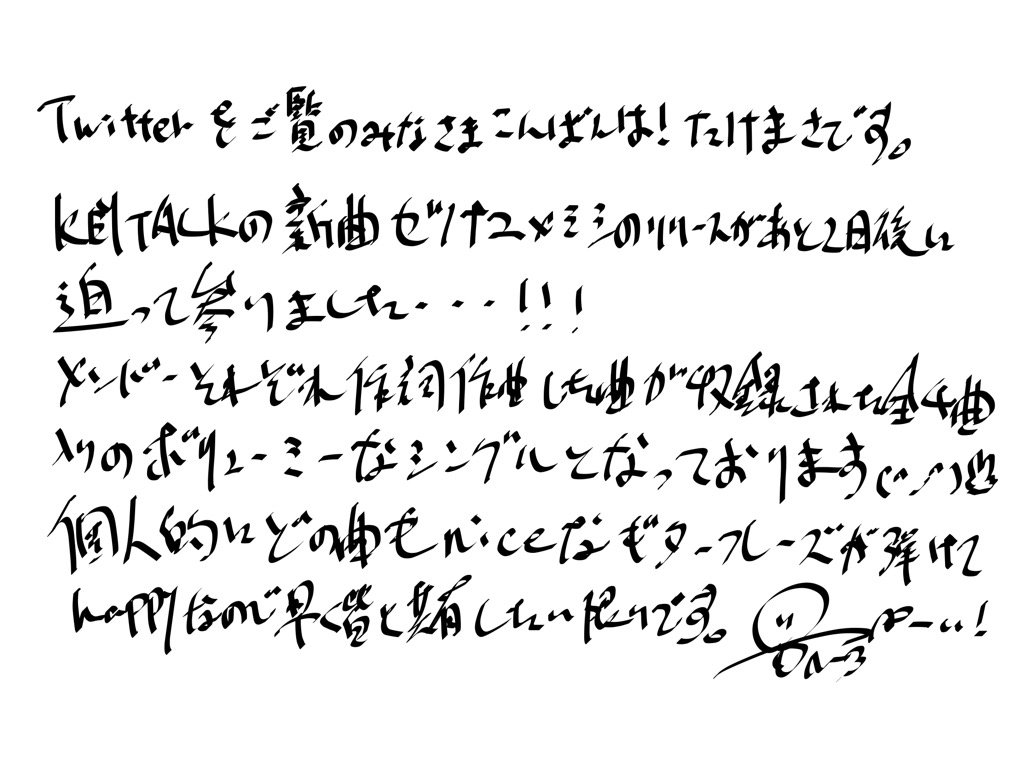 Twitterをご覧のみなさまこんばんは!たけまさです。
KEYTALKの新曲ゼツナユメミシのリリースがあと2日後に
迫って参りました・・・!!!
メンバーそれぞれ作詞作曲した曲が収録された全4曲
入りのボリューミーなシングルとなっております
個人的にどの曲もniceなギターフレーズが弾けて
happyなので早く皆と共有したい限りです。 ぺーい!